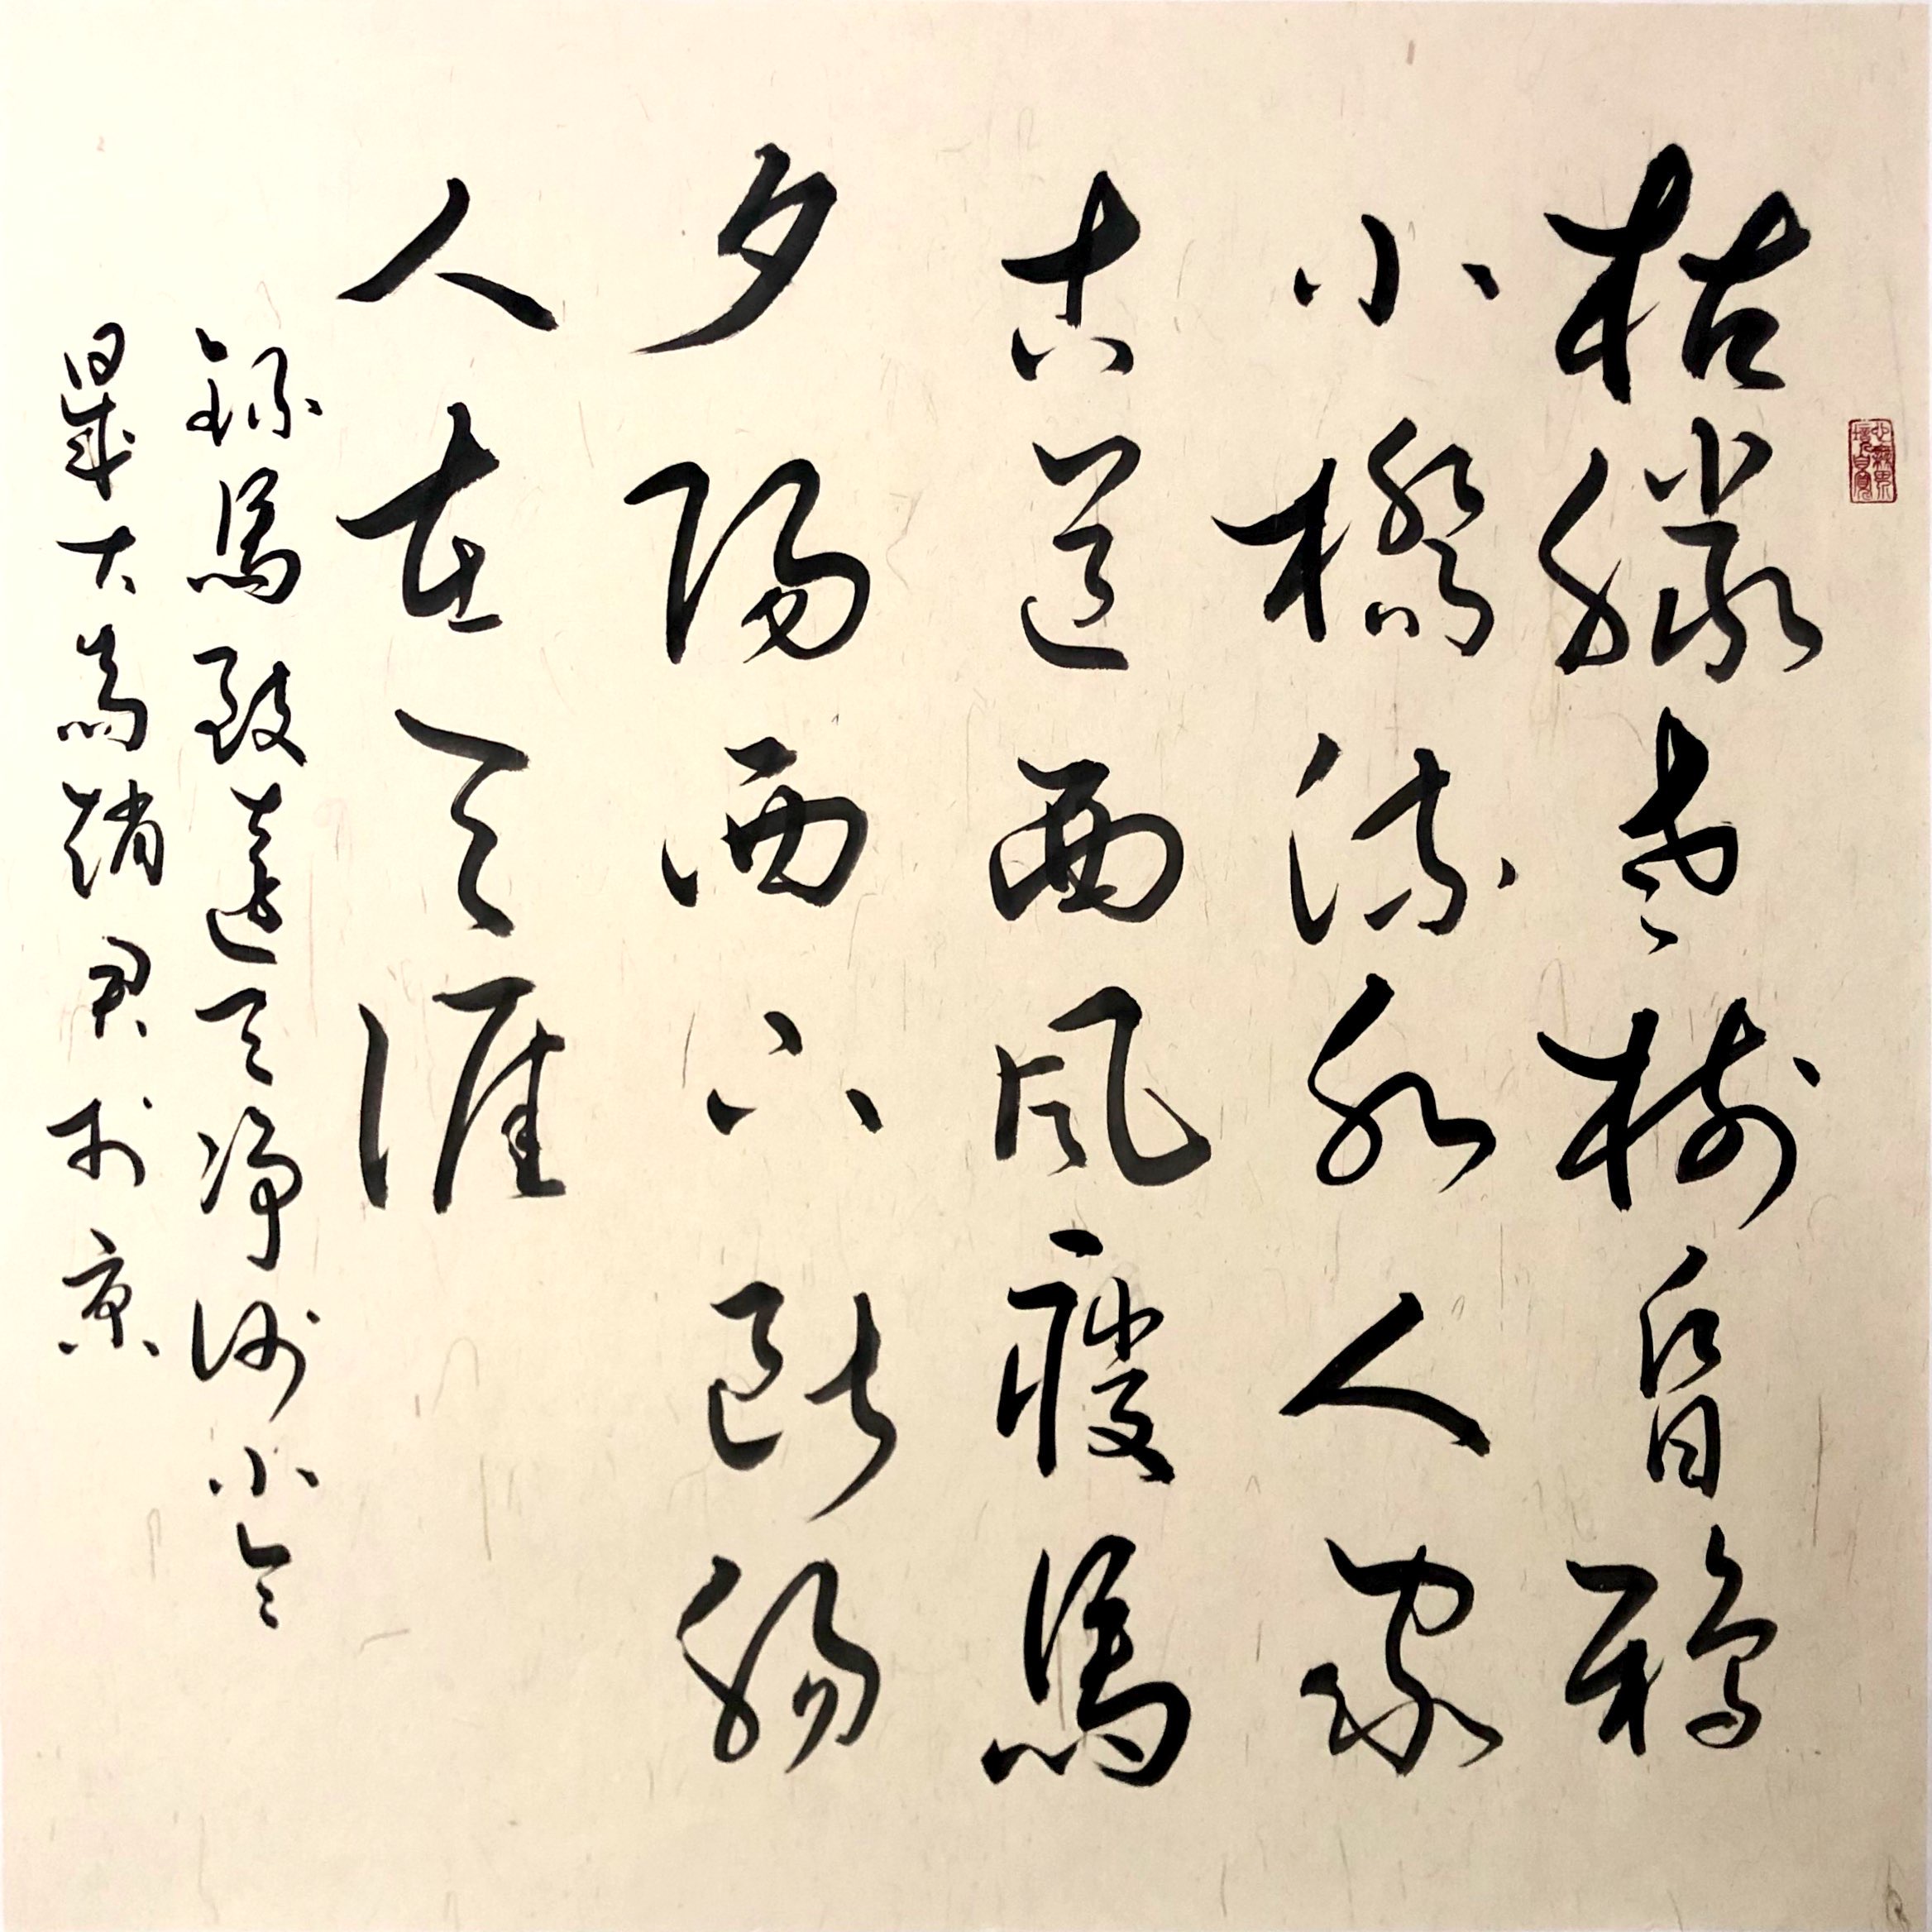 枯藤老樹昏鴉
小橋流水人家
古道西風瘦馬
夕陽西下斷腸
人在天涯
錄馬致遠天净沙小令
大趙君於京